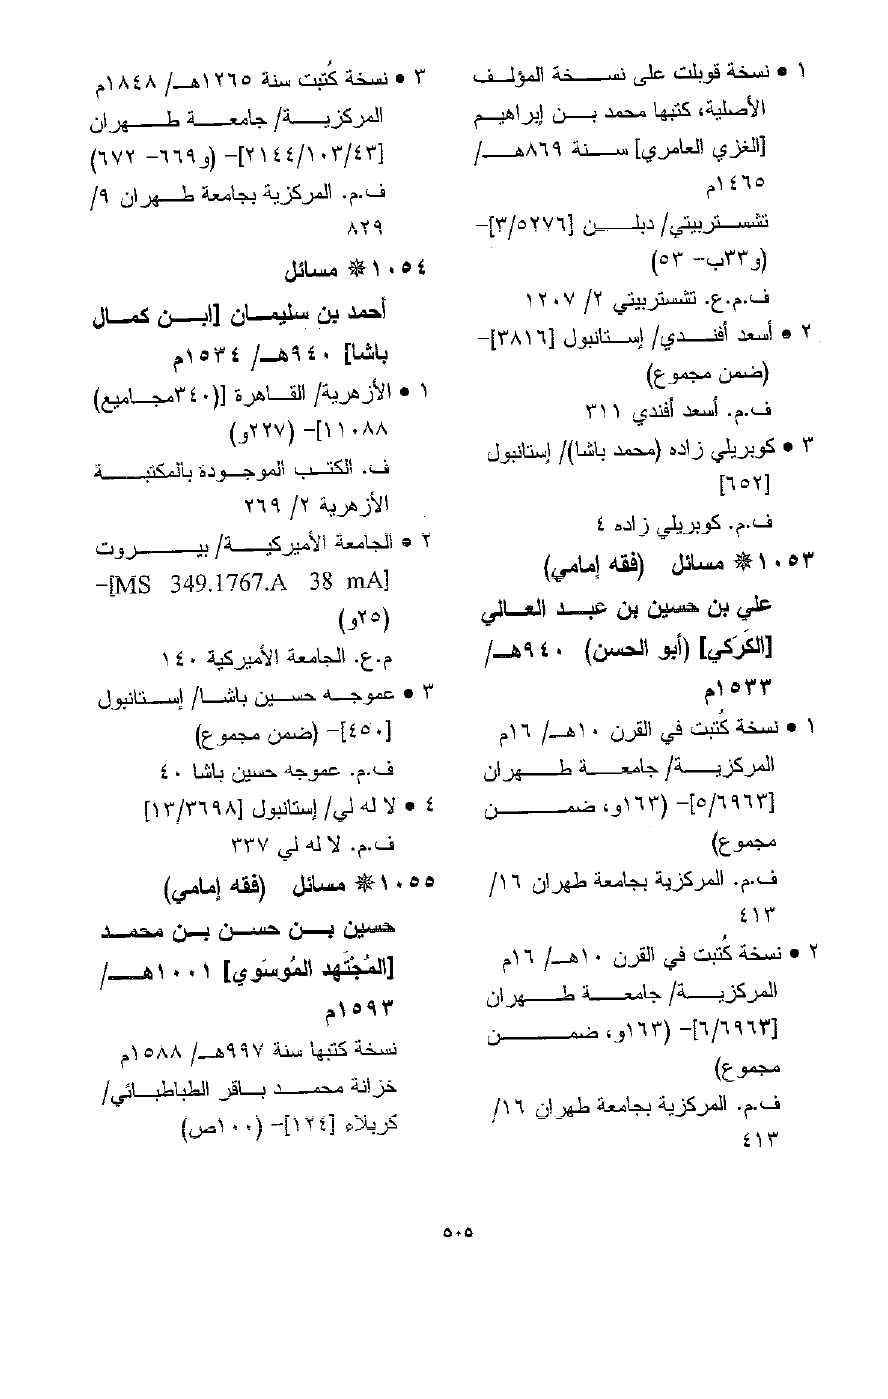 ١ • نسخة قوبلت على نسخة المؤلف
الأصلية، كتبها محمد بن إبراهيم
[الغزي العامري] سنة ٨٦٩هـ/
١٤٦٥م
تشستربيتي/ دبلن [٣/٥٢٧٦]-
(و٣٣ب- ٥٣)
ف.م.ع. تشستربيتي ٢/ ١٢٠٧
٢ • أسعد أفندي/ إستانبول [٣٨١٦]-
(ضمن مجموع)
ف.م. أسعد أفندي ٣١١
٣ • كوبريلي زاده (محمد باشا)/ إستانبول
[٦٥٢]
ف.م. كوبريلي زاده ٤
١٠٥٣ * مسائل (فقه إمامي)
علي بن حسين بن عبد العالي
[الكَرَكي] (أبو الحسن) ٩٤٠هـ/
١٥٣٣م
١ • نسخة كُتبت في القرن ١٠هـ/ ١٦م
المركزية/ جامعة طهران
[٥/٦٩٦٣]- (١٦٣و، ضمن
مجموع)
ف.م. المركزية بجامعة طهران ١٦/
٤١٣
٢ • نسخة كُتبت في القرن ١٠هـ/ ١٦م
المركزية/ جامعة طهران
[٦/٦٩٦٣]- (١٦٣و، ضمن
مجموع)
ف.م. المركزية بجامعة طهران ١٦/
٤١٣
٣ • نسخة كُتبت سنة ١٢٦٥هـ/ ١٨٤٨م
المركزية/ جامعة طهران
[٢١٤٤/١٠٣/٤٣]- (و٦٦٩- ٦٧٢)
ف.م. المركزية بجامعة طهران ٩/
٨٢٩
١٠٥٤ * مسائل
أحمد بن سليمان [ابن كمال
باشا] ٩٤٠هـ/ ١٥٣٤م
١ • الأزهرية/ القاهرة [(٣٤٠مجاميع)
١١٠٨٨]- (٢٢٧و)
ف. الكتب الموجودة بالمكتبة
الأزهرية ٢/ ٢٦٩
٢ • الجامعة الأميركية/ بيروت
[MS 349.1767.A 38 mA]-
(٢٥و)
م.ع. الجامعة الأميركية ١٤٠
٣ • عموجه حسين باشا/ إستانبول
[٤٥٠]- (ضمن مجموع)
ف.م. عموجه حسين باشا ٤٠
٤ • لا له لي/ إستانبول [١٣/٣٦٩٨]
ف.م. لا له لي ٣٣٧
١٠٥٥ * مسائل (فقه إمامي)
حسين بن حسن بن محمد
[المُجتَهد المُوسَوي] ١٠٠١هـ/
١٥٩٣م
نسخة كتبها سنة ٩٩٧هـ/ ١٥٨٨م
خزانة محمد باقر الطباطبائي/
كربلاء [١٢٤]- (١٠٠ص)
٥٠٥